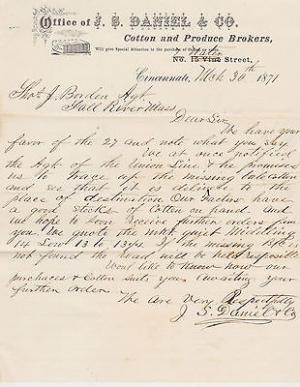 Office of J. S. DANIEL & CO.
Cotton and Produce Brokers,
Will give Special Attention to the purchase of Cotton
Water
No. 15 Vine Street,
Cincinnati, Mch 30th 1871
Thos J. Borden Agt
Fall River Mass
Dear Sir
We have your
favor of the 27 and note what you say
We at once notified
the Agt of the Union Line & he promises
us to trace up the missing bale cotton
and see that it is deliv to the
place of destination Our Factors have
a good stocks of Cotton on hand. and
we hope to soon receive further orders from
you. We quote the mkt quiet Middling
14 Low 13 to 13½. If the missing B/C is
not found the Road will be held responsible
Would like to know how our
purchases of Cotton suits you. awaiting your
further order
We are Very Respectfully
J. S. Daniel & Co